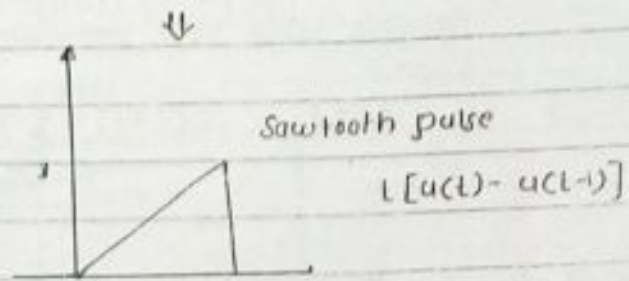 ⇓
Sawtooth pulse
t[u(t)- u(t-1)]